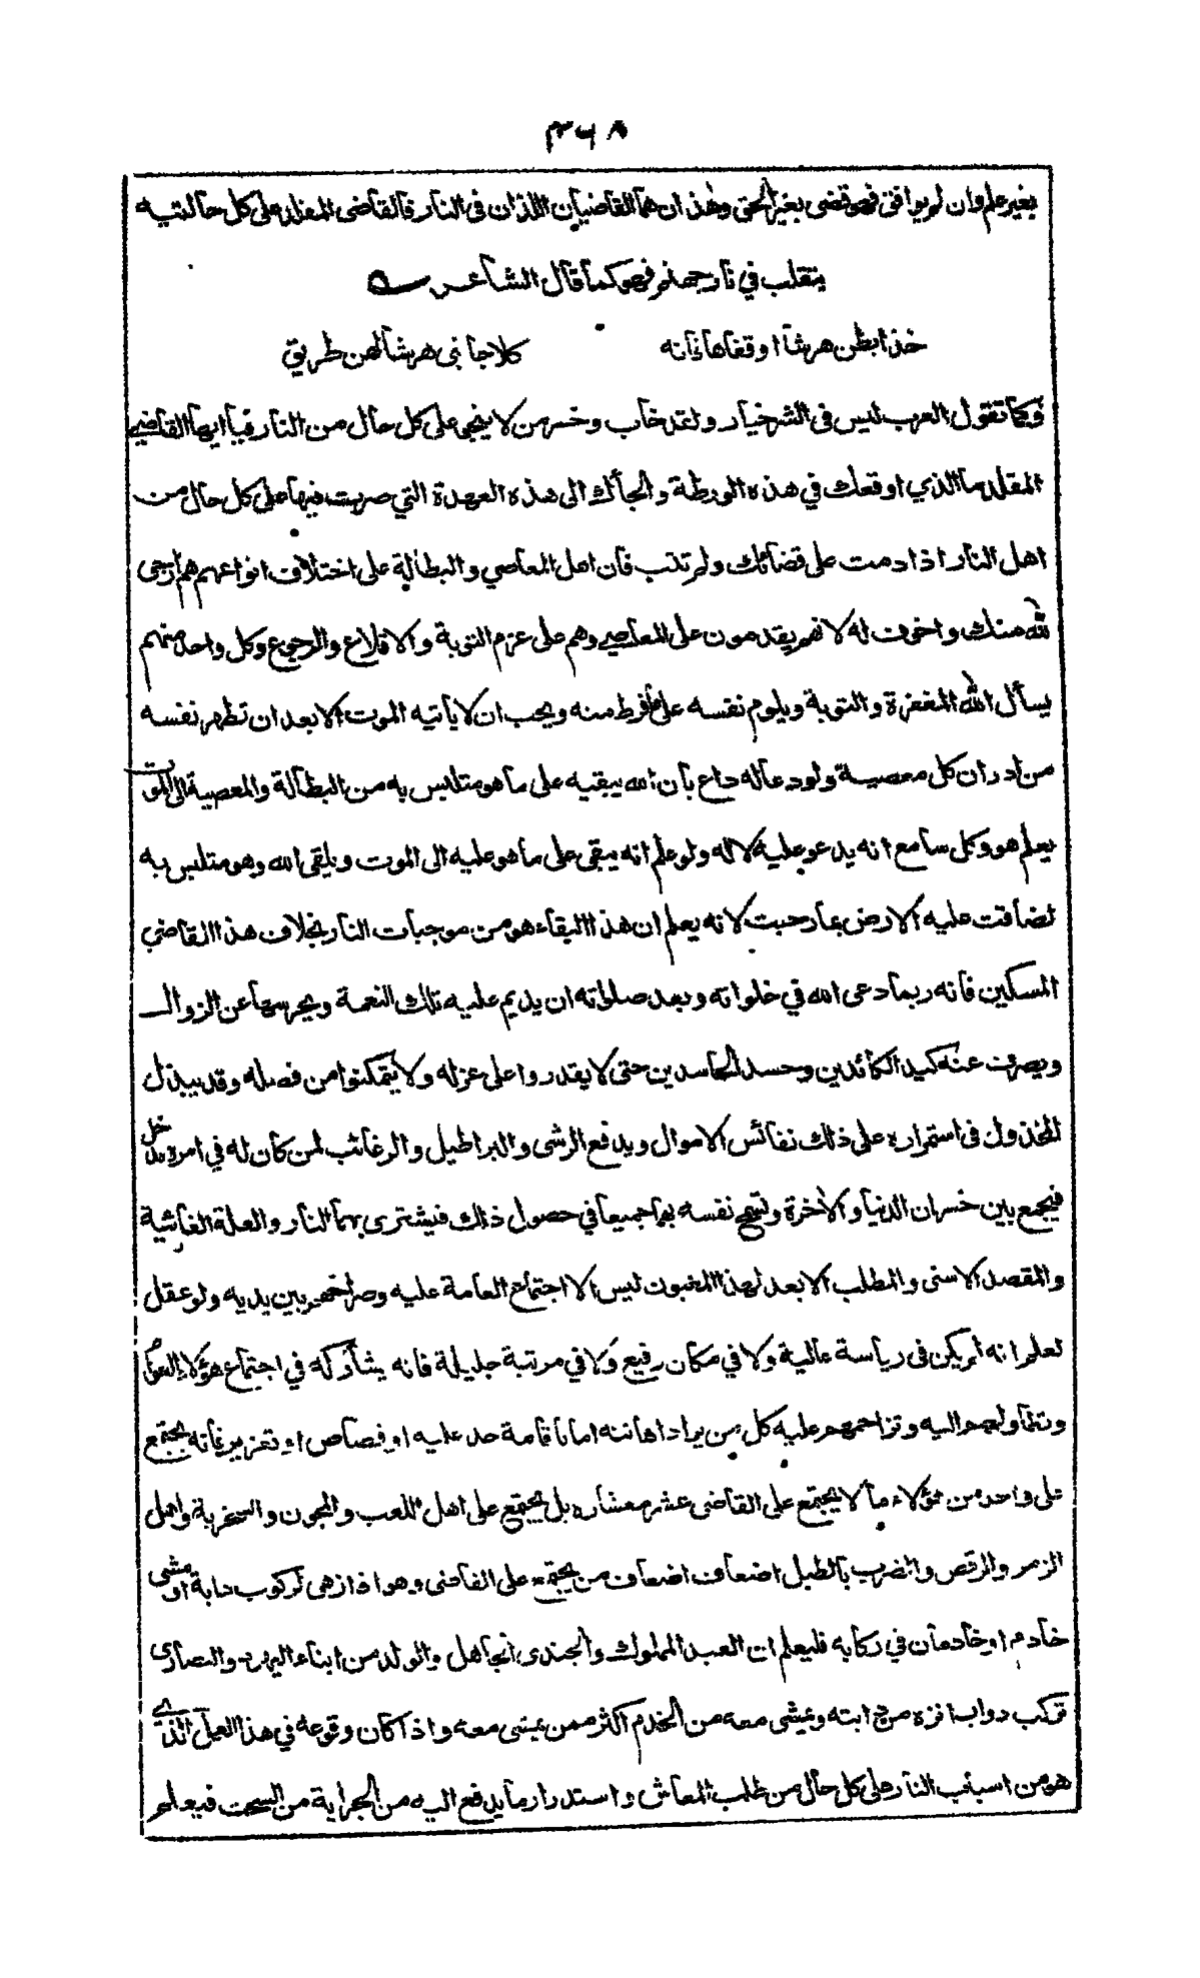 ٣٦٨
بغير علم وان لم يوافق فهو قضى بغير الحق وهذان هما القاضيان اللذان في النار فالقاضي المقلد على كل حالتيه
يتقلب في نار جهنم فهو كما قال الشاعر
خذا بطن هرشا او قفاها فانه كلا جانبي هرشا لهن طريق
وكما تقول العرب ليس في الشر خيار ولقد خاب وخسر من لا ينجى على كل حال من النار فيا ايها القاضي
المقلد ما الذي اوقعك في هذه الورطة والجأك الى هذه العهدة التي صرت فيها على كل حال من
اهل النار اذا دمت على قضائك ولم تتب فان اهل المعاصي والبطالة على اختلاف انواعهم هم ارجى
لله منك واخوف له لانهم يقدمون على المعاصي وهم على عزم التوبة والاقلاع والرجوع وكل واحد منهم
يسأل الله المغفرة والتوبة ويلوم نفسه على ما فرط منه ويحب ان لا يأتيه الموت الا بعد ان تطهر نفسه
من ادران كل معصية ولو دعا له داع بأن الله يبقيه على ما هو متلبس به من البطالة والمعصية الى الموت
يعلم هو وكل سامع انه يدعو عليه لا له ولو علم انه يبقى على ما هو عليه الى الموت ويلقى الله وهو متلبس به
لضاقت عليه الارض بما رحبت لانه يعلم ان هذا البقاء هو من موجبات النار بخلاف هذا القاضي
المسكين فانه ربما دعى الله في خلواته وبعد صلواته ان يديم عليه تلك النعمة ويحرسها عن الزوال
ويصرف عنه كيد الكائدين وحسد الحاسدين حتى لا يقدروا على عزله ولا يتمكنوا من فصله وقد يبذل
المخذول في استمراره على ذلك نفائس الاموال ويدفع الرشى والبراطيل والرغائب لمن كان له في امره دخل
فيجمع بين خسران الدنيا والاخرة وتسمح نفسه بهما جميعا في حصول ذلك فيشترى بهما النار والعلة الغائية
والمقصد الاسنى والمطلب الابعد لهذا المغبون ليس الا اجتماع العامة عليه وصراخهم بين يديه ولو عقل
لعلم انه لم يكن في رياسة عالية ولا في مكان رفيع ولا في مرتبة جليلة فانه يشاركه في اجتماع هؤلاء العوام
وتطاولهم اليه وتزاحمهم عليه كل من يراد اهانته اما باقامة حد عليه او قصاص او تعزير فانه يجتمع
على واحد من هؤلاء ما لا يجتمع على القاضي عشر معشاره بل يجتمع على اهل اللعب والمجون والسخرية واهل
الزمر والرقص والضرب بالطبل اضعاف اضعاف من يجتمع على القاضي وهو اذا زهى لركوب دابة او مشى
خادم او خادمان في ركابه فليعلم ان العبد المملوك والجندي الجاهل والولد من ابناء اليهود والنصارى
تركب دواب افره من دابته ويمشي معه من الخدم اكثر ممن يمشي معه واذا كان وقوعه في هذا العمل الذي
هو من اسباب النار على كل حال من طلب المعاش واستدرار ما يدفع اليه من الجراية من السحت فيعلم